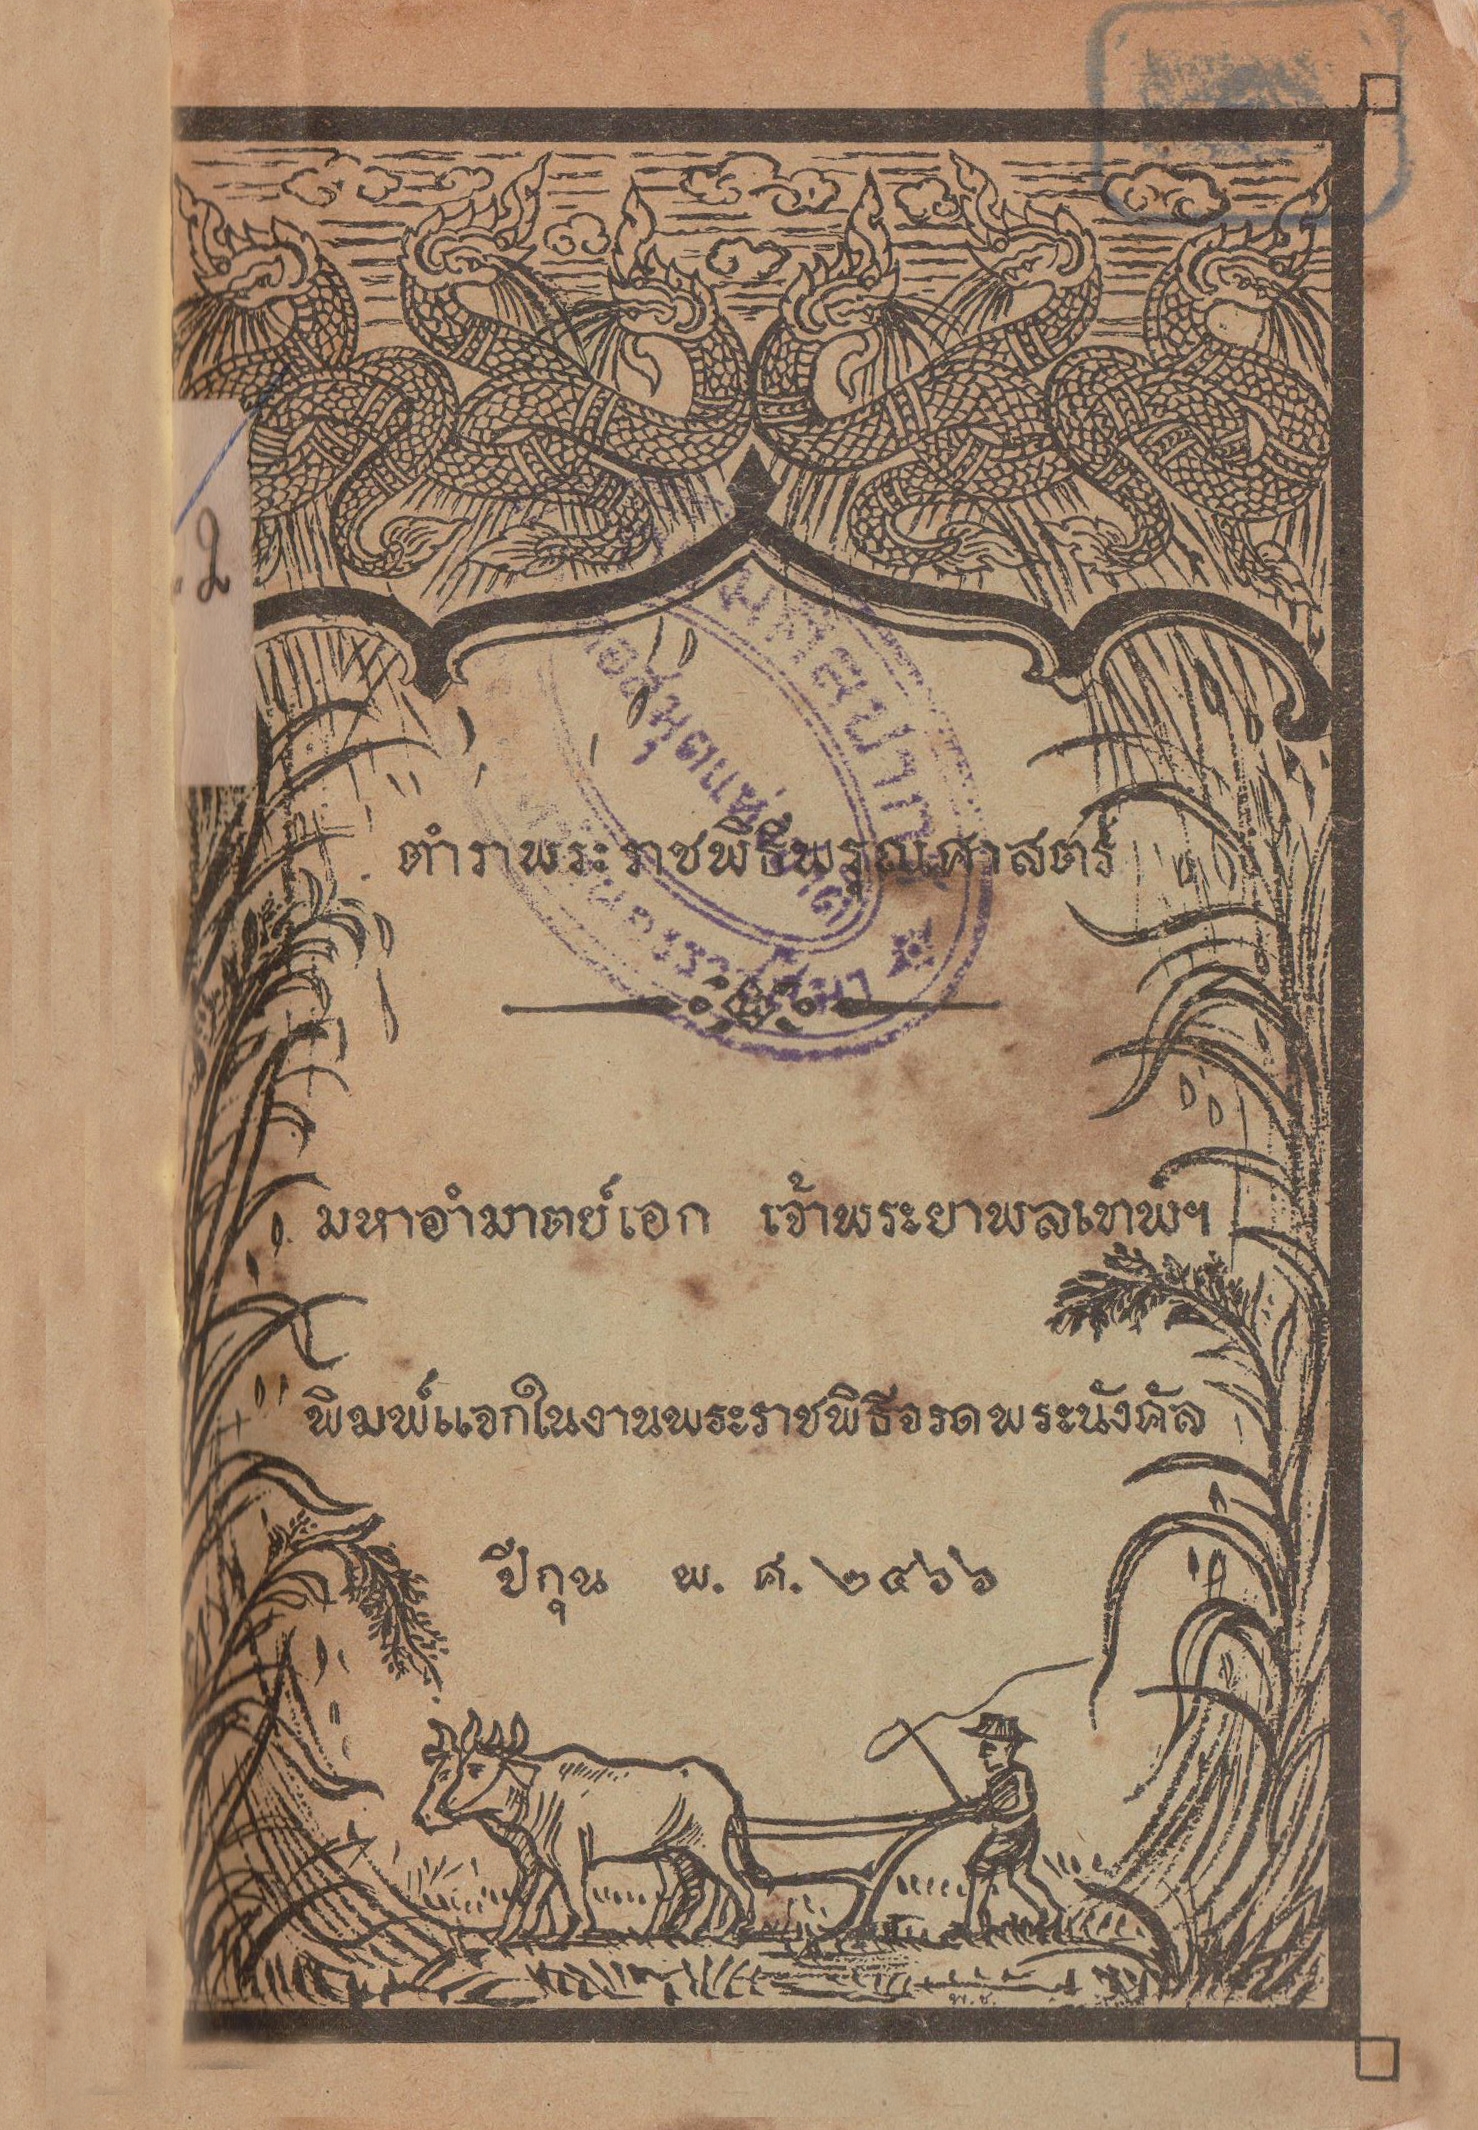 ตำราพระราชพิธีพรุณศาสตร์
มหาอำมาตย์เอก เจ้าพระยาพลเทพฯ
พิมพ์แจกในงานพระราชพิธีจรดพระนังคัล
ปีกุน พ. ศ. ๒๔๖๖
พ.ช.